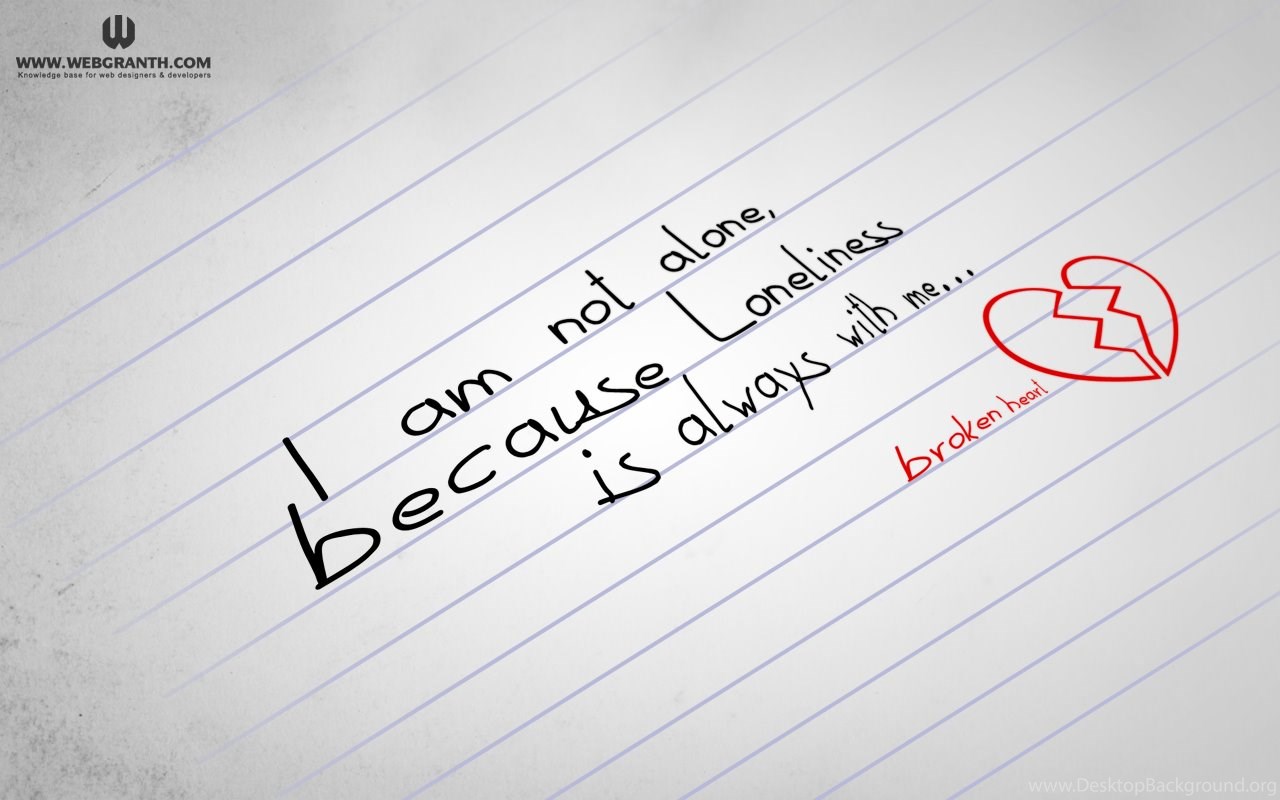 WWW.WEBGRANTH.COM
Knowledge base for web designers & developers
I am not alone,
because Loneliness
is always with me...
broken heart
www.DesktopBackground.org